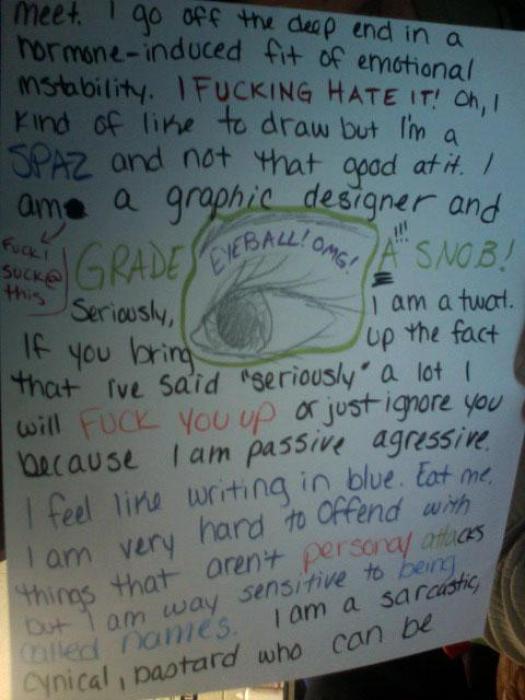 meet. I go off the deep end in a
hormone-induced fit of emotional
instability. I FUCKING HATE IT! Oh, I
kind of like to draw but I'm a
SPAZ and not that good at it. I
am a graphic designer and
FUCK! I
SUCK @
this
GRADE
EYEBALL! OMG!
A!!! SNOB!
Seriously,
I am a twat.
If you bring
up the fact
that ive said "seriously" a lot I
will FUCK YOU UP or just ignore you
because I am passive agressive.
I feel like writing in blue. Eat me.
I am very hard to offend with
things that aren't personal attacks
but I am way sensitive to being
called names. I am a sarcastic,
cynical, bastard who can be